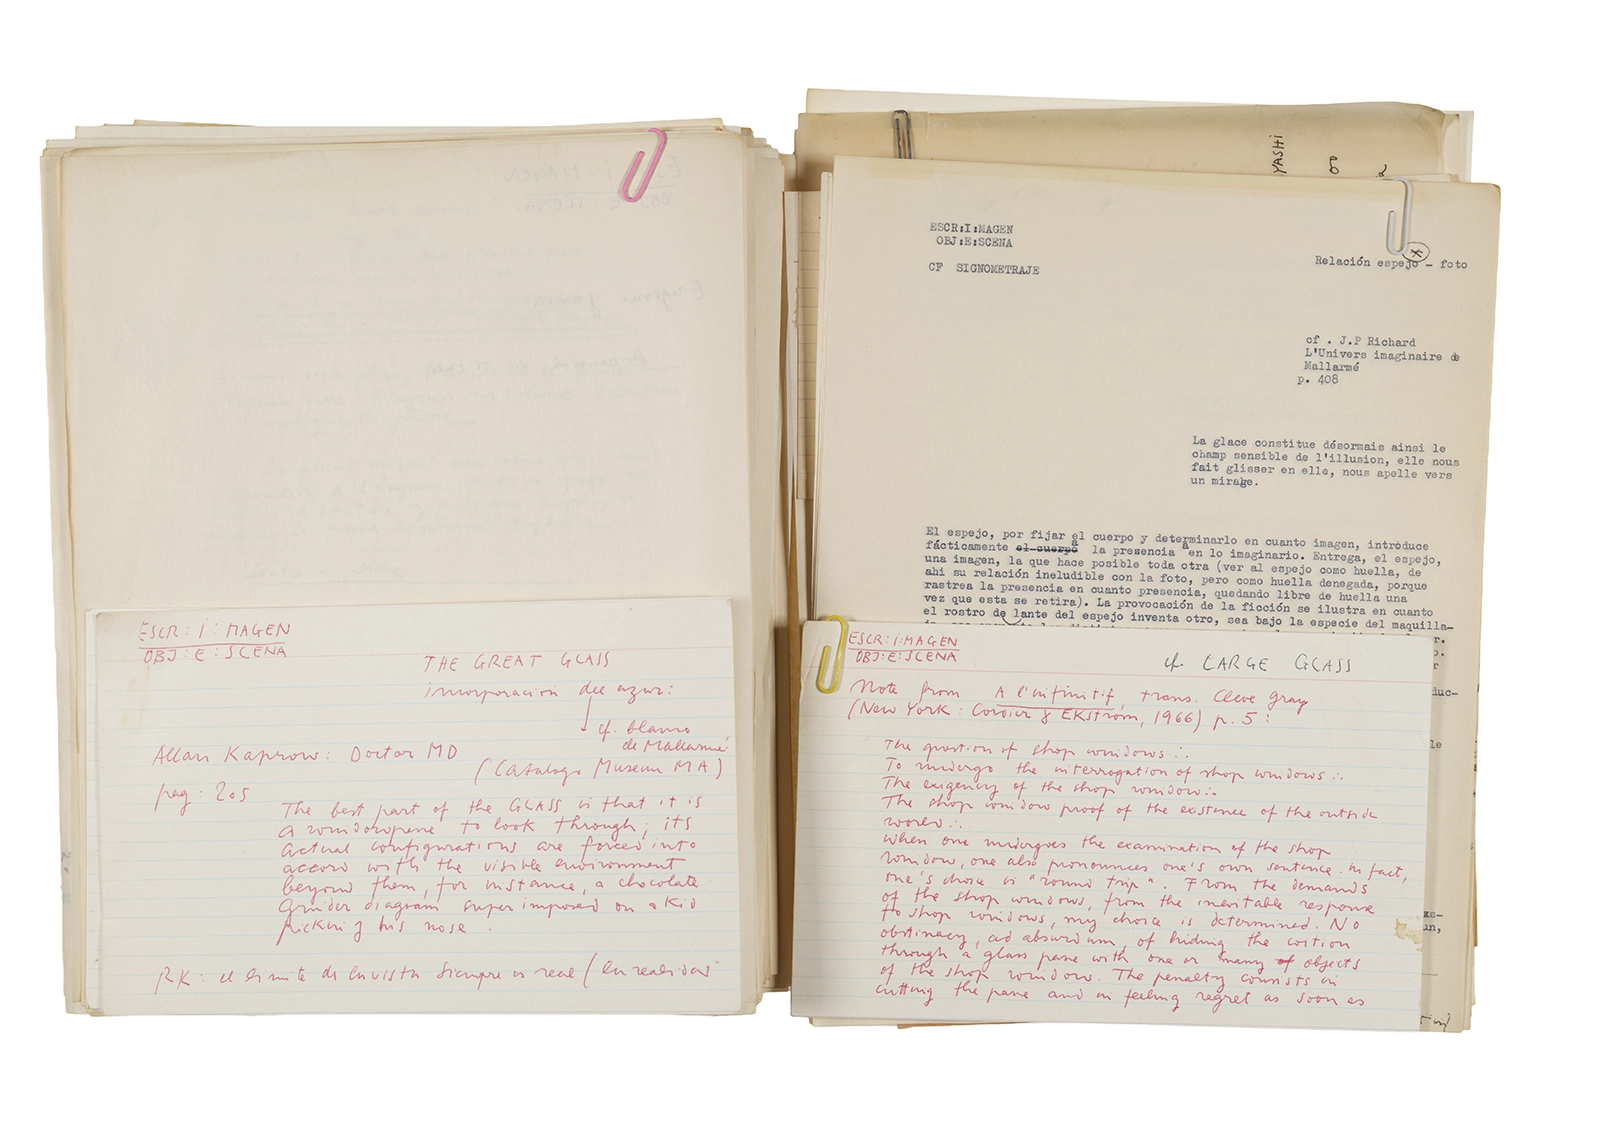 ESCR:I:MAGEN
OBJ:E:SCENA
THE GREAT GLASS
incorporacion del azur:
cf. blanco
de Mallarmé
Allan Kaprow: Doctor MD
(Catalogo Museum MA)
pag: 205
The best part of the GLASS is that it is
a windowpane to look through; its
actual configurations are forced into
accord with the visible environment
beyond them, for instance, a chocolate
grinder diagram superimposed on a kid
picking his nose.
RK: el limite de la vista siempre es real (la realidad
YASHI
8
2
ESCR:I:MAGEN
OBJ:E:SCENA
CF SIGNOMETRAJE
Relación espejo - foto
cf . J.P Richard
L'Univers imaginaire de
Mallarmé
p. 408
La glace constitue désormais ainsi le
champ sensible de l'illusion, elle nous
fait glisser en elle, nous apelle vers
un mirage.
El espejo, por fijar el cuerpo y determinarlo en cuanto imagen, introduce
fácticamente el cuerpo a la presencia a en lo imaginario. Entrega, el espejo,
una imagen, la que hace posible toda otra (ver al espejo como huella, de
ahi su relación ineludible con la foto, pero como huella denegada, porque
rastrea la presencia en cuanto presencia, quedando libre de huella una
vez que esta se retira). La provocación de la ficción se ilustra en cuanto
el rostro de lante del espejo inventa otro, sea bajo la especie del maquilla-
ESCR:I:MAGEN
OBJ:E:SCENA
cf. LARGE GLASS
Note from A l'infinitif, trans. Cleve Gray
(New York: Cordier & EKström, 1966) p. 5:
The question of shop windows ∴
To undergo the interrogation of shop windows ∴
The exigency of the shop window ∴
The shop window proof of the existence of the outside
world ∴
When one undergoes the examination of the shop
window, one also pronounces one's own sentence. In fact,
one's choice is "round trip". From the demands
of the shop windows, from the inevitable response
to shop windows, my choice is determined. No
obstinacy, ad absurdum, of hiding the coition
through a glass pane with one or many of objects
of the shop window. The penalty consists in
cutting the pane and in feeling regret as soon as